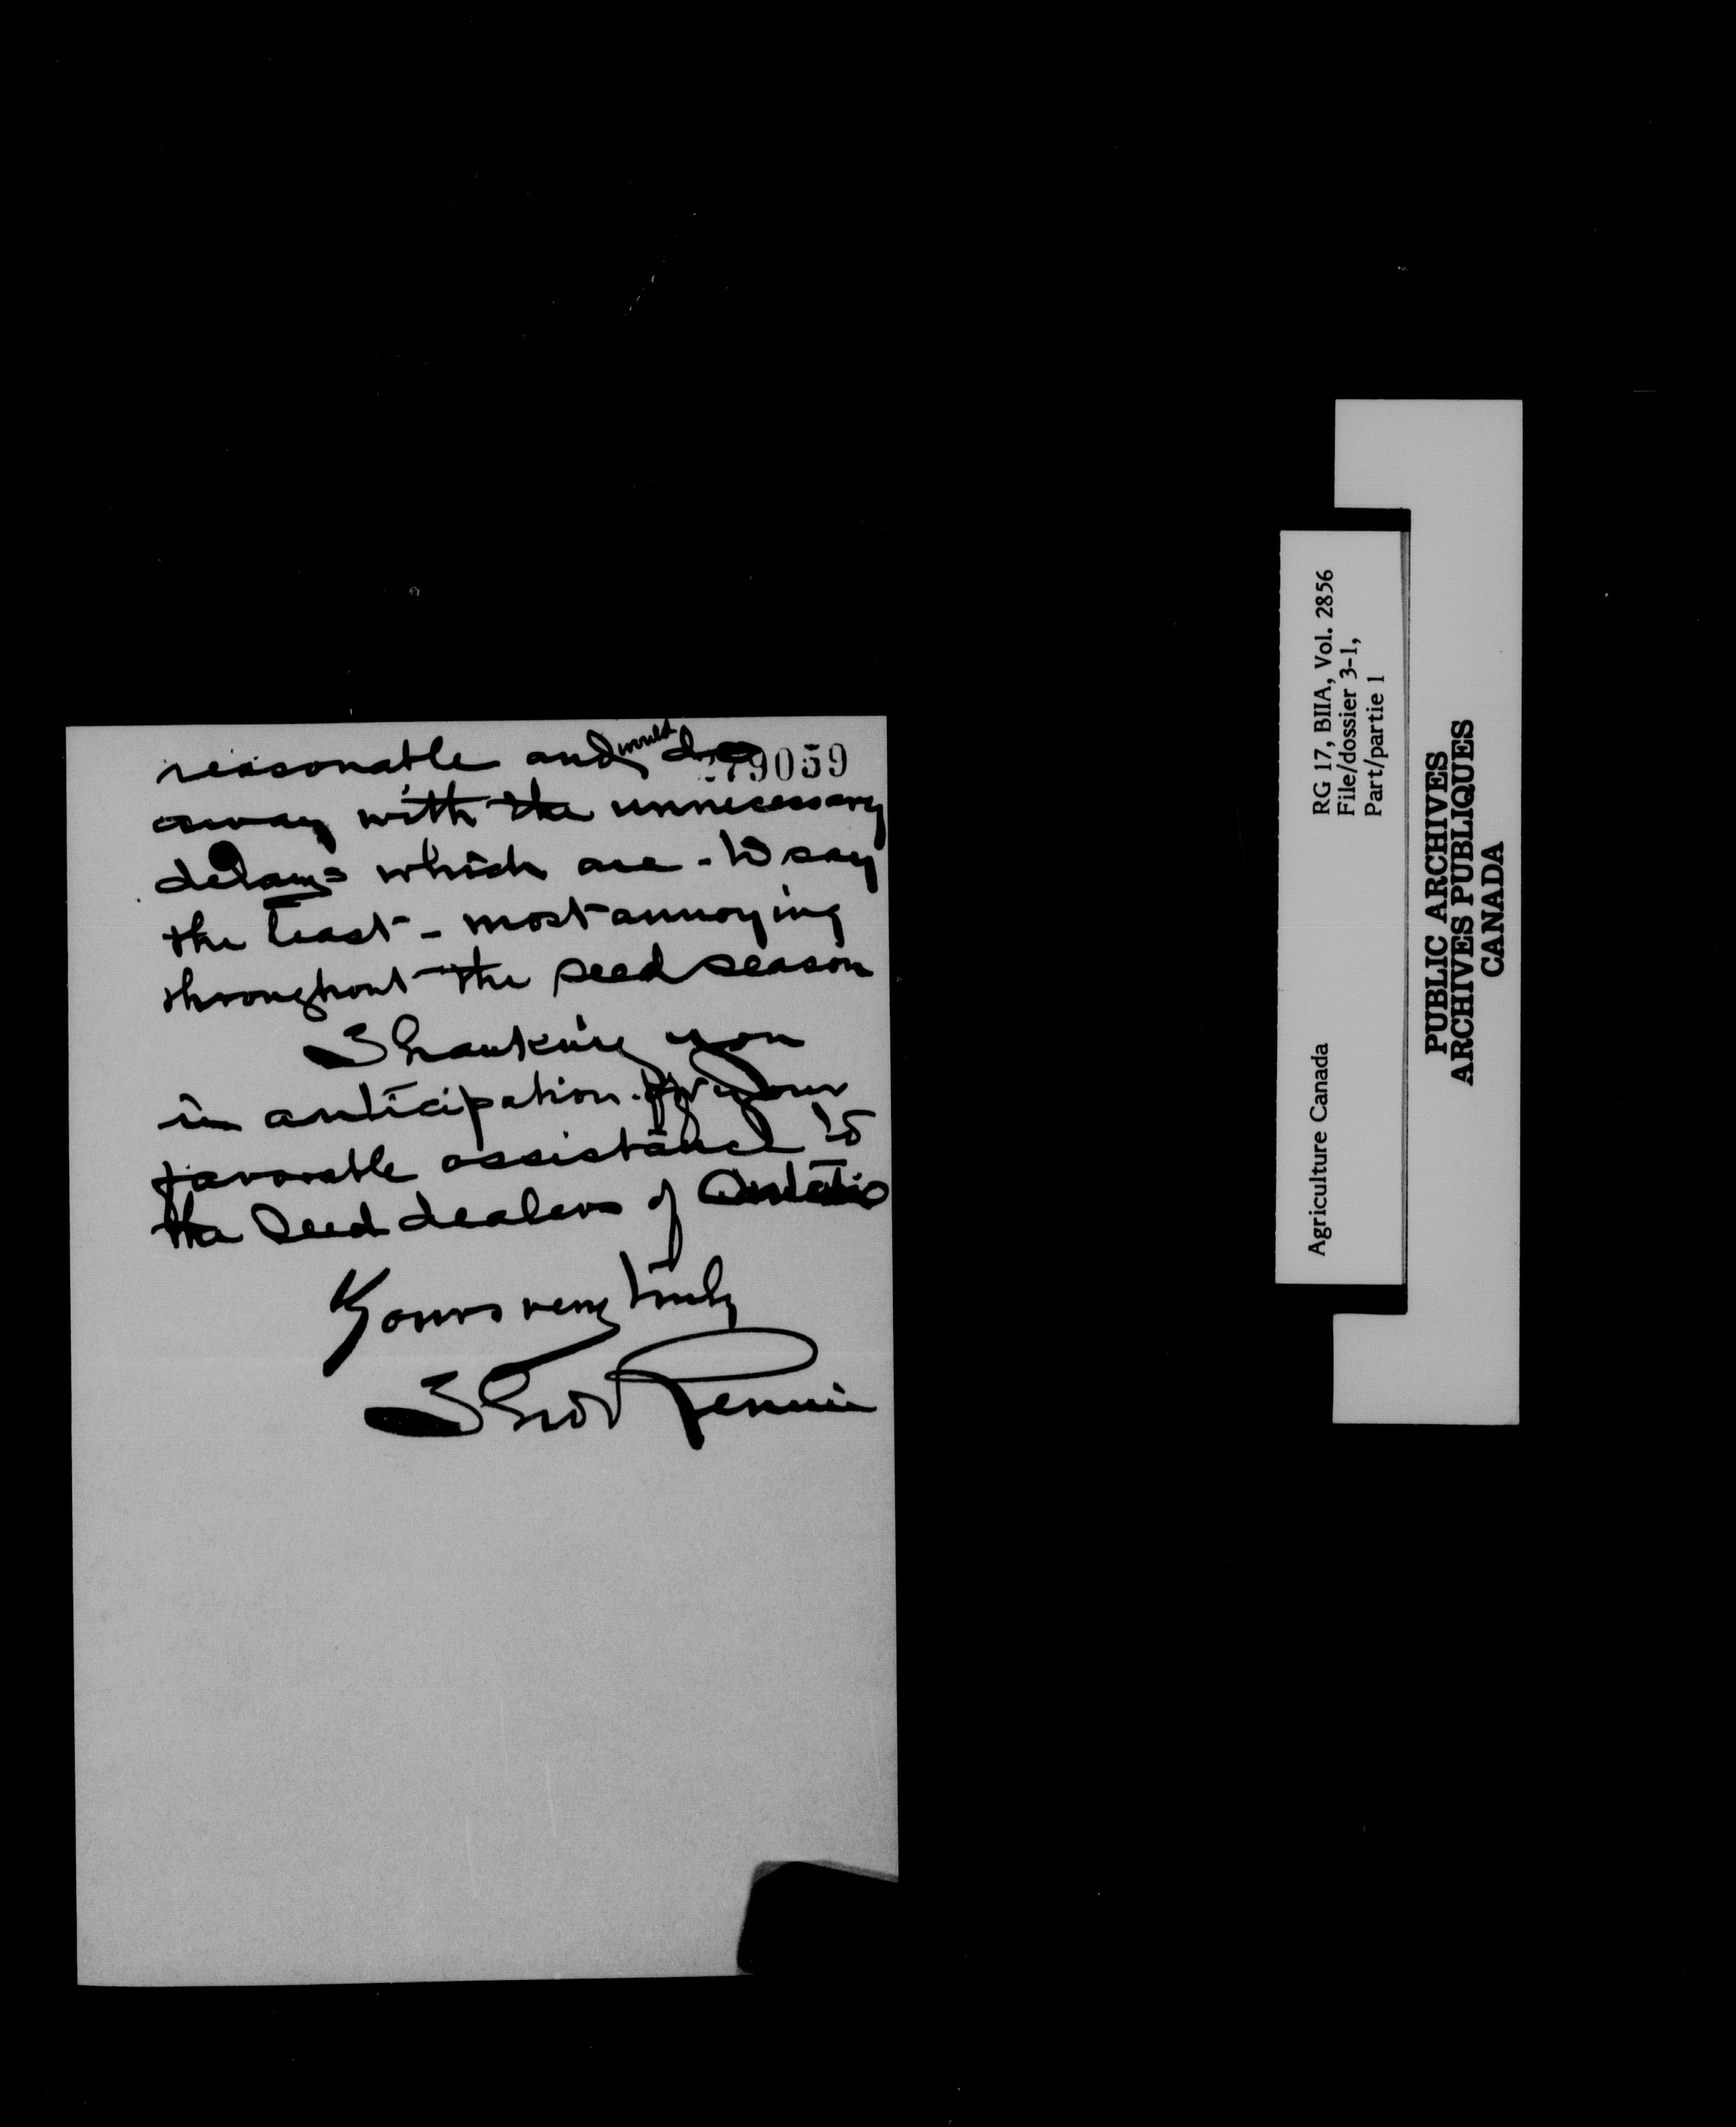 reasonable and would do
279059
away with the unnecessary
delays which are - to say
the least - most annoying
throughout the seed season
Thanking you
in anticipation for your
favorable assistance to
the Seed dealers of Ontario
Yours very truly
Thos Rennie
RG 17, BIIA, Vol. 2856
File/dossier 3-1,
Part/partie 1
Agriculture Canada
PUBLIC ARCHIVES
ARCHIVES PUBLIQUES
CANADA